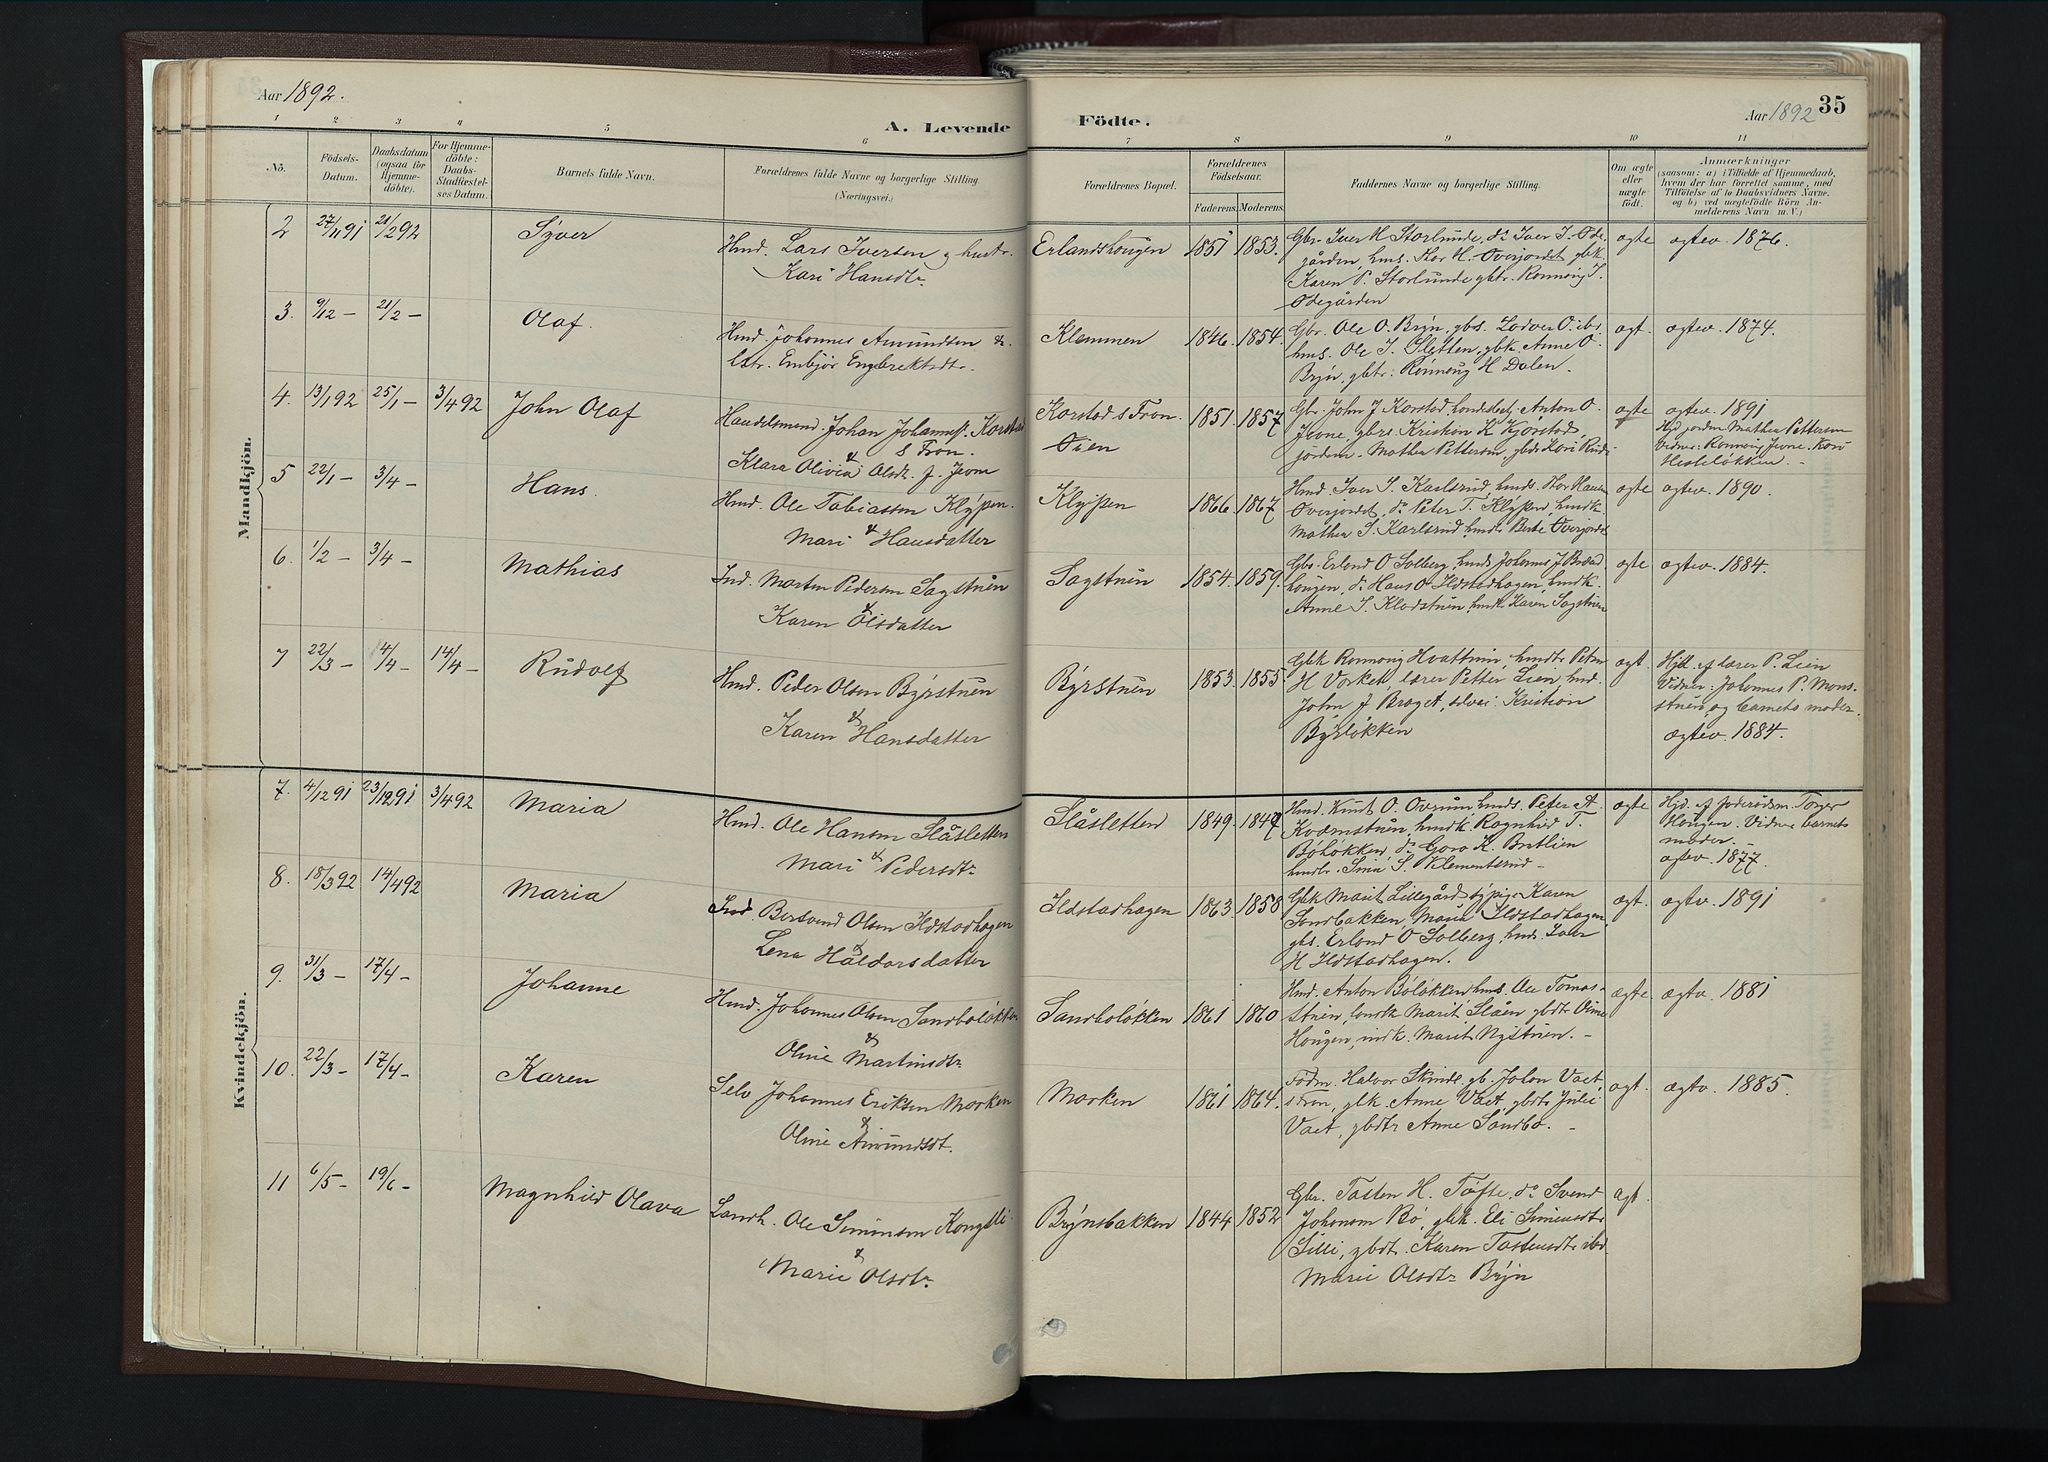 Aar 1892.
A. Levende
Födte.
Aar 1892
35
1 2 3 4 5 6 7 8 9 10 11
No.
Födsels-
Datum.
Daabsdatum
(ogsaa for
Hjemme-
döbte).
For Hjemme-
döbte:
Daabs-
Stadfæstel-
ses Datum.
Barnets fulde Navn.
Forældrenes fulde Navne og borgerlige Stilling
(Næringsvei.)
Forældrenes Bopæl.
Forældrenes
Födselsaar.
Faderens. Moderens.
Faddernes Navne og borgerlige Stilling.
Om ægte
eller
uægte
födt.
Anmærkninger
(saasom: a) i Tilfælde af Hjemmedaab,
hvem der har forrettet samme, med
Tilföielse af to Daabsvidners Navne.
og b) ved uægtefödte Börn An-
melderens Navn m. V.)
Mandkjön.
2 27/11 91 21/2 92
Syver
Hmd. Lars Iversen & hustr.
Kari Hansdtr
Erlandshougen 1851 1853.
Gbr. Iver H Storlunde, do Iver I. Øde-
gården, hms. Thor H. Overjordet gbk.
Karen P. Storlunde gbtr. Rønnoug I.
Ødegården
ægte ægtev. 1876.
3. 9/12 – 21/2 –
Olaf.
Hmd. Johannes Amundsen &
Embjør Engbrektsdtr.
Klemmen 1846. 1854.
Gbr. Ole O. Bryn, gbs. Lodver O. ibr.
hms. Ole I. Sletten, gbk. Anne O.
Bryn, gbtr. Rønnoug H Dalen.
ægt. ægtev. 1874.
4. 13/1 92 25/1 – 3/4 92
John Olaf
Handelsmand. Johan Johannes. Korstad
S Fron.
&
Klara Olivia Olsdt. f. Jevne
Korstad S Fron.
Øien
1851. 1857
Gbr. John J Korstad, Anton O.
Jevne, gbrs. Kristian K Kjørstad,
jordem. Mathea Pettersen,
ægte ægtev. 1891
Hjd. jordm Mathea Pettersen
Vidner: Rønnoug Jevne, Kari
Hesteløkken. –
5 22/1 – 3/4 –
Hans.
Hmd. Ole Tobiassen Klypen.
&
Mari Hansdatter
Klypen 1866. 1867
Hmd. Iver I. Karlsrud, hmds. Thor Hansen
Overjordet, do Peter T. Klypen, hmdk
Mathea I. Karlsrud, hmdk Berte Overjordet
ægte ægtev. 1890.
6. 1/2 – 3/4 –
Mathias
Ind. Morten Pedersen Sagstuen
&
Karen Olsdatter
Sagstuen 1854. 1859.
Gbs. Erland O Solberg, hmds Johannes J Brænd
hougen, do Hans O Ildstadhagen, hmdk.
Anne I. Klodstuen, hmdk Karen Sagstuen
ægte ægtev. 1884.
7 22/3 – 4/4 – 14/4 –
Rudolf
Hmd. Peder Olsen Byrstuen
&
Karen Hansdatter
Byrstuen 1853. 1855.
Gbk Rønnoug Hvattum, hmdtr Petra
H Vorkel lærer Petter Lien hmd.
John J Braget, selvei. Kristian
Byrløkken
ægt. Hjd. af lærer P. Lien
Vidner: Johannes P. Mons-
stuen, og barnets moder.
ægtev. 1884.
Kvindekjön.
7. 4/12 91 23/12 91 3/4 92
Maria
Hmd. Ole Hansen Slåsletten
&
Mari Pedersdtr
Slåsletten 1849. 1847
Hmd. Knut O. Ovrum, hmds. Peter A.
Kvernstuen, hmdk. Ragnhild T.
Bøløkken, do Goro K. Bratlien
S. Klementsrud –
ægte Hjd. af jordm. Torger
Hougen. Vidner barnets
moder. –
ægtev. 1877.
8. 18/3 92 14/4 92
Maria
Ind. Bersvend Olsen Ildstadhagen
&
Lena Haldorsdatter
Ildstadhagen 1863 1858
Gbk Marit Lillegård, sypige Karen
Sandbakken, Marie Ildstadhagen,
gbs. Erland O Solberg, hmds. Iver
H Ildstadhagen.
ægt. ægtv. 1891
9. 31/3 – 17/4 –
Johanne
Hmd. Johannes Olsen Sandboløkken
&
Oline Martinsdtr.
Sandboløkken 1861 1860
Hmd. Anton Bøløkken, hms. Ole Tomas-
stuen, Marit Slåen, gbdtr Oline
Hougen, indk. Marit Nystuen. –
ægte ægtv. 1881
10. 22/3 – 17/4 –
Karen
Selv. Johannes Eriksen Marken
&
Oline Amundsdt.
Marken 1861 1864.
Fødm. Halvor Skindl. gb. Johan Vaet
S Fron, gbk. Anne Vaet, gbdtr Julie
Vaet, gbdtr Anne Sandbo. –
ægt. ægtv. 1885.
11 6/5 – 19/6 –
Magnhild Olava
Landh. Ole Simensen Kongsli
&
Marie Olsdtr.
Brynsbakken 1844 1852
Gbr. Tosten H. Tofte, do Svend
Johansen Bø, gbk. Eli Simensdtr
Lilli, gbdt. Karen Tostensdtr ibd
Marie Olsdtr Bryn
ægt.